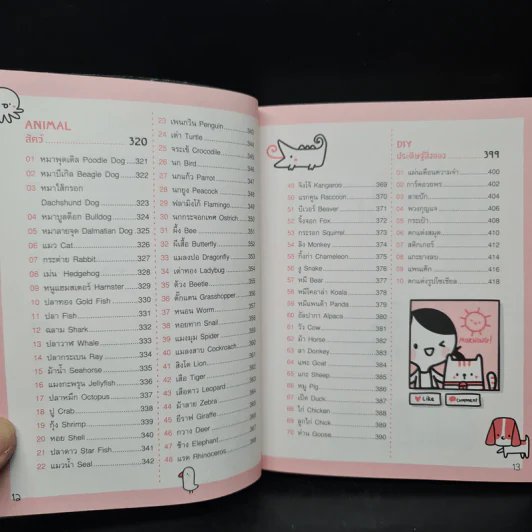 ANIMAL
สัตว์ 320
01 หมาพุดเดิล Poodle Dog 321
02 หมาบีเกิล Beagle Dog 322
03 หมาไส้กรอก
Dachshund Dog 323
04 หมาบูลด็อก Bulldog 324
05 หมาลายจุด Dalmatian Dog 325
06 แมว Cat 326
07 กระต่าย Rabbit 327
08 เม่น Hedgehog 328
09 หนูแฮมสเตอร์ Hamster 329
10 ปลาทอง Gold Fish 330
11 ปลา Fish 331
12 ฉลาม Shark 332
13 ปลาวาฬ Whale 333
14 ปลากระเบน Ray 334
15 ม้าน้ำ Seahorse 335
16 แมงกะพรุน Jellyfish 336
17 ปลาหมึก Octopus 337
18 ปู Crab 338
19 กุ้ง Shrimp 339
20 หอย Shell 340
21 ปลาดาว Star Fish 341
22 แมวน้ำ Seal 342
12
23 เพนกวิน Penguin 343
24 เต่า Turtle 344
25 จระเข้ Crocodile 345
26 นก Bird 346
27 นกแก้ว Parrot 347
28 นกยูง Peacock 348
29 ฟลามิงโก้ Flamingo 349
30 นกกระจอกเทศ Ostrich 350
31 ผึ้ง Bee 351
32 ผีเสื้อ Butterfly 352
33 แมลงปอ Dragonfly 353
34 เต่าทอง Ladybug 354
35 ด้วง Beetle 355
36 ตั๊กแตน Grasshopper 356
37 หนอน Worm 357
38 หอยทาก Snail 358
39 แมงมุม Spider 359
40 แมลงสาบ Cockroach 360
41 สิงโต Lion 361
42 เสือ Tiger 362
43 เสือดาว Leopard 363
44 ม้าลาย Zebra 364
45 ยีราฟ Giraffe 365
46 กวาง Deer 366
47 ช้าง Elephant 367
48 แรด Rhinoceros 368
49 จิงโจ้ Kangaroo 369
50 แรคคูน Raccoon 370
51 บีเวอร์ Beaver 371
52 จิ้งจอก Fox 372
53 กระรอก Squirrel 373
54 ลิง Monkey 374
55 กิ้งก่า Chameleon 375
56 งู Snake 376
57 หมี Bear 377
58 หมีโคอาล่า Koala 378
59 หมีแพนด้า Panda 379
60 อัลปาก้า Alpaca 380
61 วัว Cow 381
62 ม้า Horse 382
63 ลา Donkey 383
64 แพะ Goat 384
65 แกะ Sheep 385
66 หมู Pig 386
67 เป็ด Duck 387
68 ไก่ Chicken 388
69 ลูกไก่ Chick 389
70 ห่าน Goose 390
DIY
ประดิษฐ์สิ่งของ 399
01 แผ่นเตือนความจำ 400
02 การ์ดอวยพร 402
03 สายปัก 404
04 พวงกุญแจ 406
05 กระเป๋า 408
06 ตกแต่งสมุด 410
07 สติกเกอร์ 412
08 แกะยางลบ 414
09 แพนเค้ก 416
10 ตกแต่งรูปโซเชียล 418
Like
comment
13